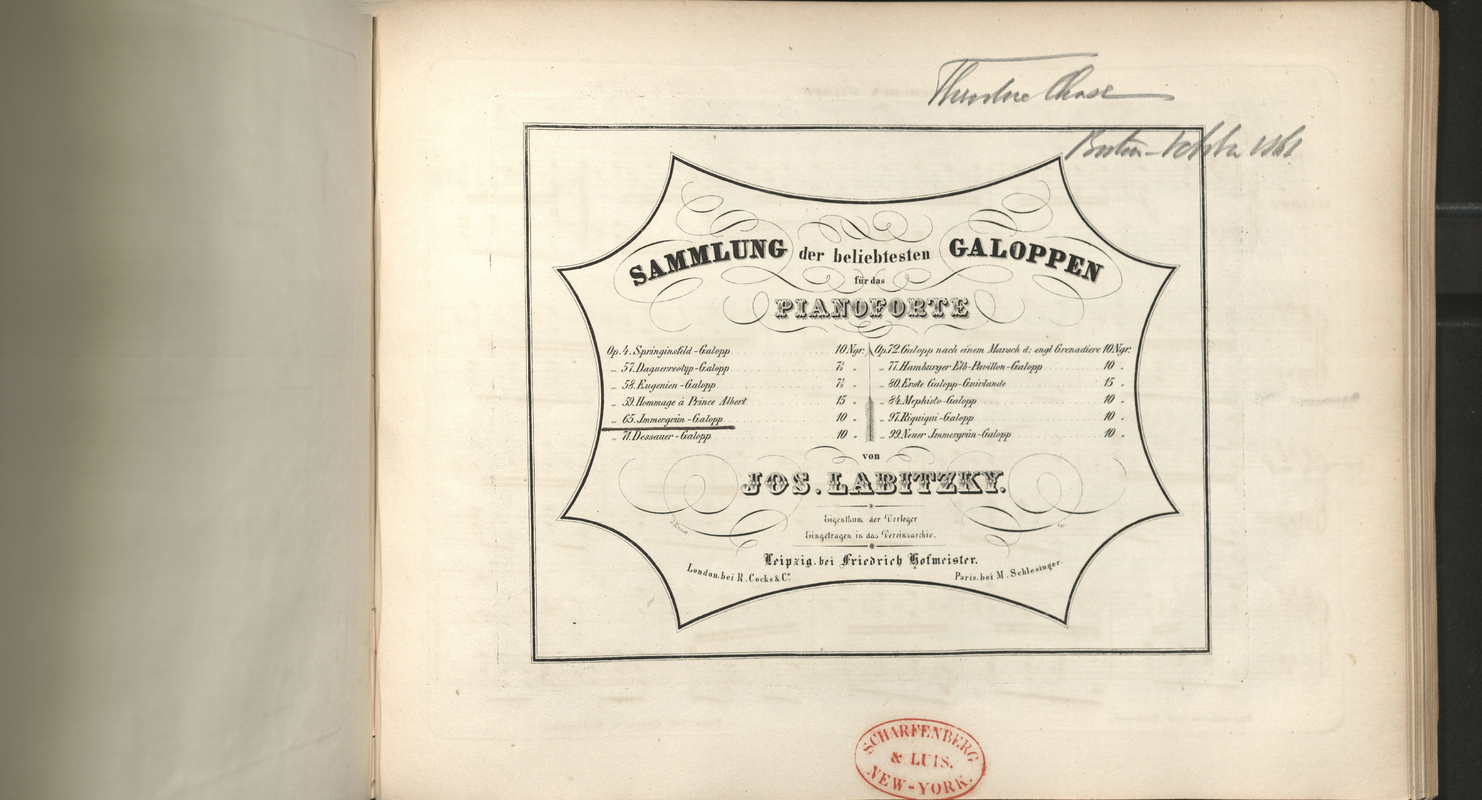 Theodore Chase
SAMMLUNG der beliebtesten GALOPPEN
für das
PIANOFORTE
Op. 4. Springinsfeld-Galopp 10 Ngr.
„ 57. Daguerreotyp-Galopp 7½ „
„ 58. Eugenien-Galopp 7½ „
„ 59. Hommage à Prince Albert 15 „
„ 65. Immergrün-Galopp 10 „
„ 71. Dessauer-Galopp 10 „
Op. 72. Galopp nach einem Marsch d: engl Grenadiere 10 Ngr.
„ 77. Hamburger Elb-Pavillon-Galopp 10 „
„ 80. Erste Galopp-Guirlande 15 „
„ 84. Mephisto-Galopp 10 „
„ 97. Riquiqui-Galopp 10 „
„ 99. Neuer Immergrün-Galopp 10 „
von
JOS. LABITZKY.
Eigenthum der Verleger
Eingetragen in das Vereinsarchiv.
Leipzig, bei Friedrich Hofmeister.
London. bei R. Cocks & Cº.
Paris. bei M. Schlesinger.
SCHARFENBERG
& LUIS.
NEW-YORK.